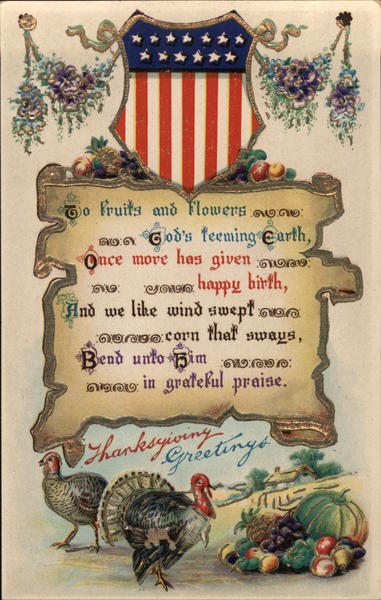 To fruits and flowers
God's teeming Earth,
Once more has given
happy birth,
And we like wind swept
corn that sways,
Bend unto Him
in grateful praise.
Thanksgiving
Greetings